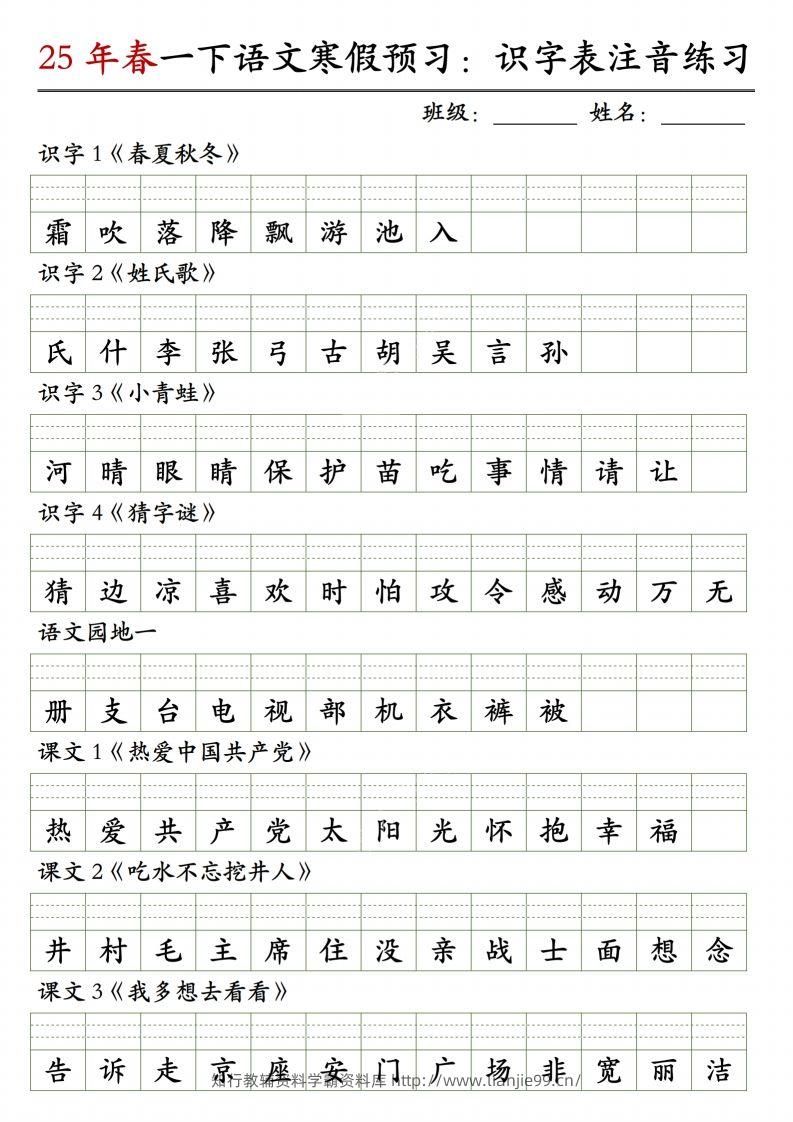 25 年春一下语文寒假预习：识字表注音练习
班级：________ 姓名：________
识字 1《春夏秋冬》
霜 吹 落 降 飘 游 池 入
识字 2《姓氏歌》
氏 什 李 张 弓 古 胡 吴 言 孙
识字 3《小青蛙》
河 晴 眼 睛 保 护 苗 吃 事 情 请 让
识字 4《猜字谜》
猜 边 凉 喜 欢 时 怕 攻 令 感 动 万 无
语文园地一
册 支 台 电 视 部 机 衣 裤 被
课文 1《热爱中国共产党》
热 爱 共 产 党 太 阳 光 怀 抱 幸 福
课文 2《吃水不忘挖井人》
井 村 毛 主 席 住 没 亲 战 士 面 想 念
课文 3《我多想去看看》
告 诉 走 京 座 安 门 广 扬 非 宽 丽 洁
知行教辅资料学霸资料库 http://www.tianjie99.cn/